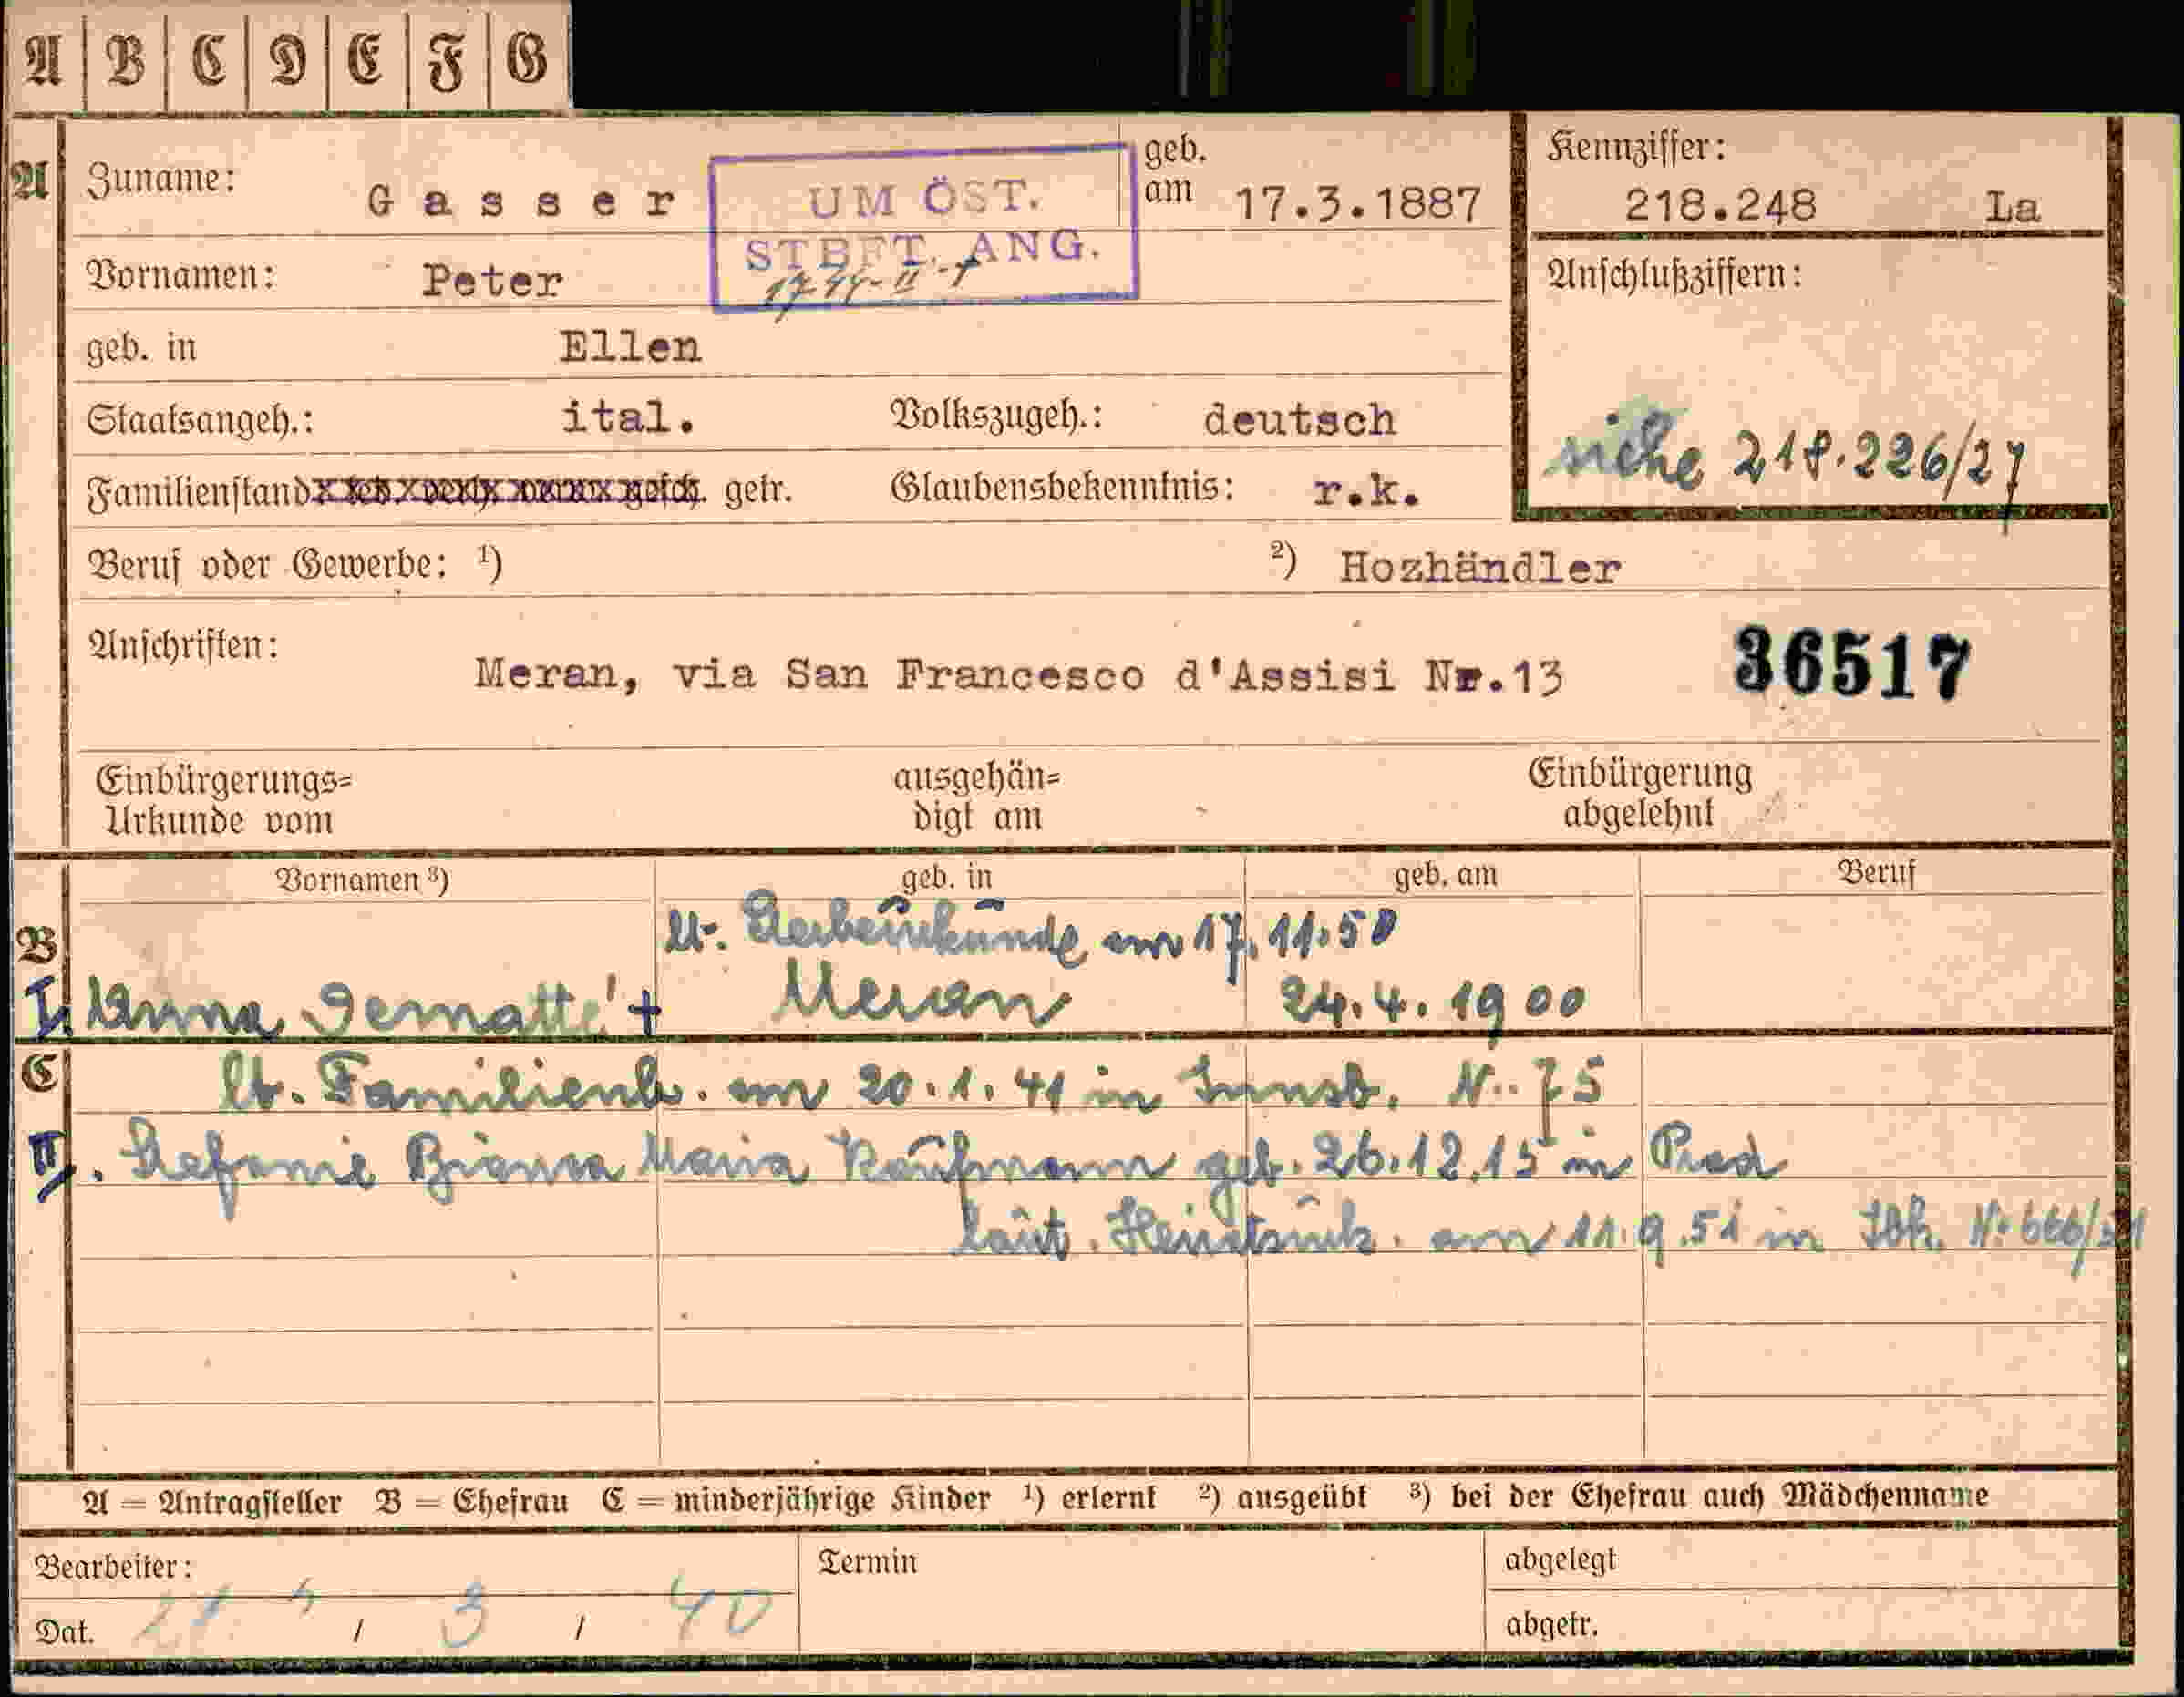 A B C D E F G
A Zuname: Gasser geb. am 17.3.1887 Kennziffer: 218.248 La
UM ÖST.
STBFT. ANG.
Vornamen: Peter Anschlußziffern:
geb. in Ellen
Staatsangeh.: ital. Volkszugeh.: deutsch siehe 218.226/27
Familienstand getr. Glaubensbekenntnis: r.k.
Beruf oder Gewerbe: ¹) ²) Hozhändler
Anschriften: Meran, via San Francesco d'Assisi Nr.13 36517
Einbürgerungs= ausgehän= Einbürgerung
Urkunde vom digt am abgelehnt
Vornamen ³) geb. in geb. am Beruf
B lt. Sterbeurkunde am 17.11.50
I. Anna + Meran 24.4.1900
C lt. Familienb. am 20.1.41 in Innsb. N. 75
II. Stefanie Bianca Maria Kaufmann geb. 26.12.15 in Prad
laut. Heiratsurk. am 11.9.51 in Ibk. Nr 666/51
A = Antragsteller B = Ehefrau C = minderjährige Kinder ¹) erlernt ²) ausgeübt ³) bei der Ehefrau auch Mädchenname
Bearbeiter: Termin abgelegt
Dat. / 3 / 40 abgetr.